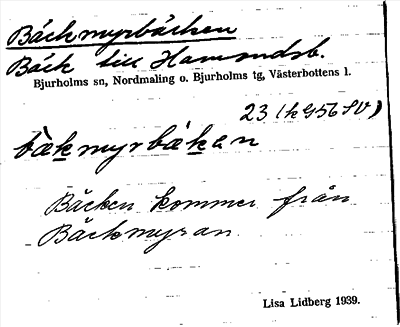 Bäckmyrbäcken
Bäck till Hamsndsb.
Bjurholms sn, Nordmaling o. Bjurholms tg, Västerbottens l.
23 (k 956 SV)
bækmyrbäkan
Bäcken kommer från
Bäckmyran.
Lisa Lidberg 1939.